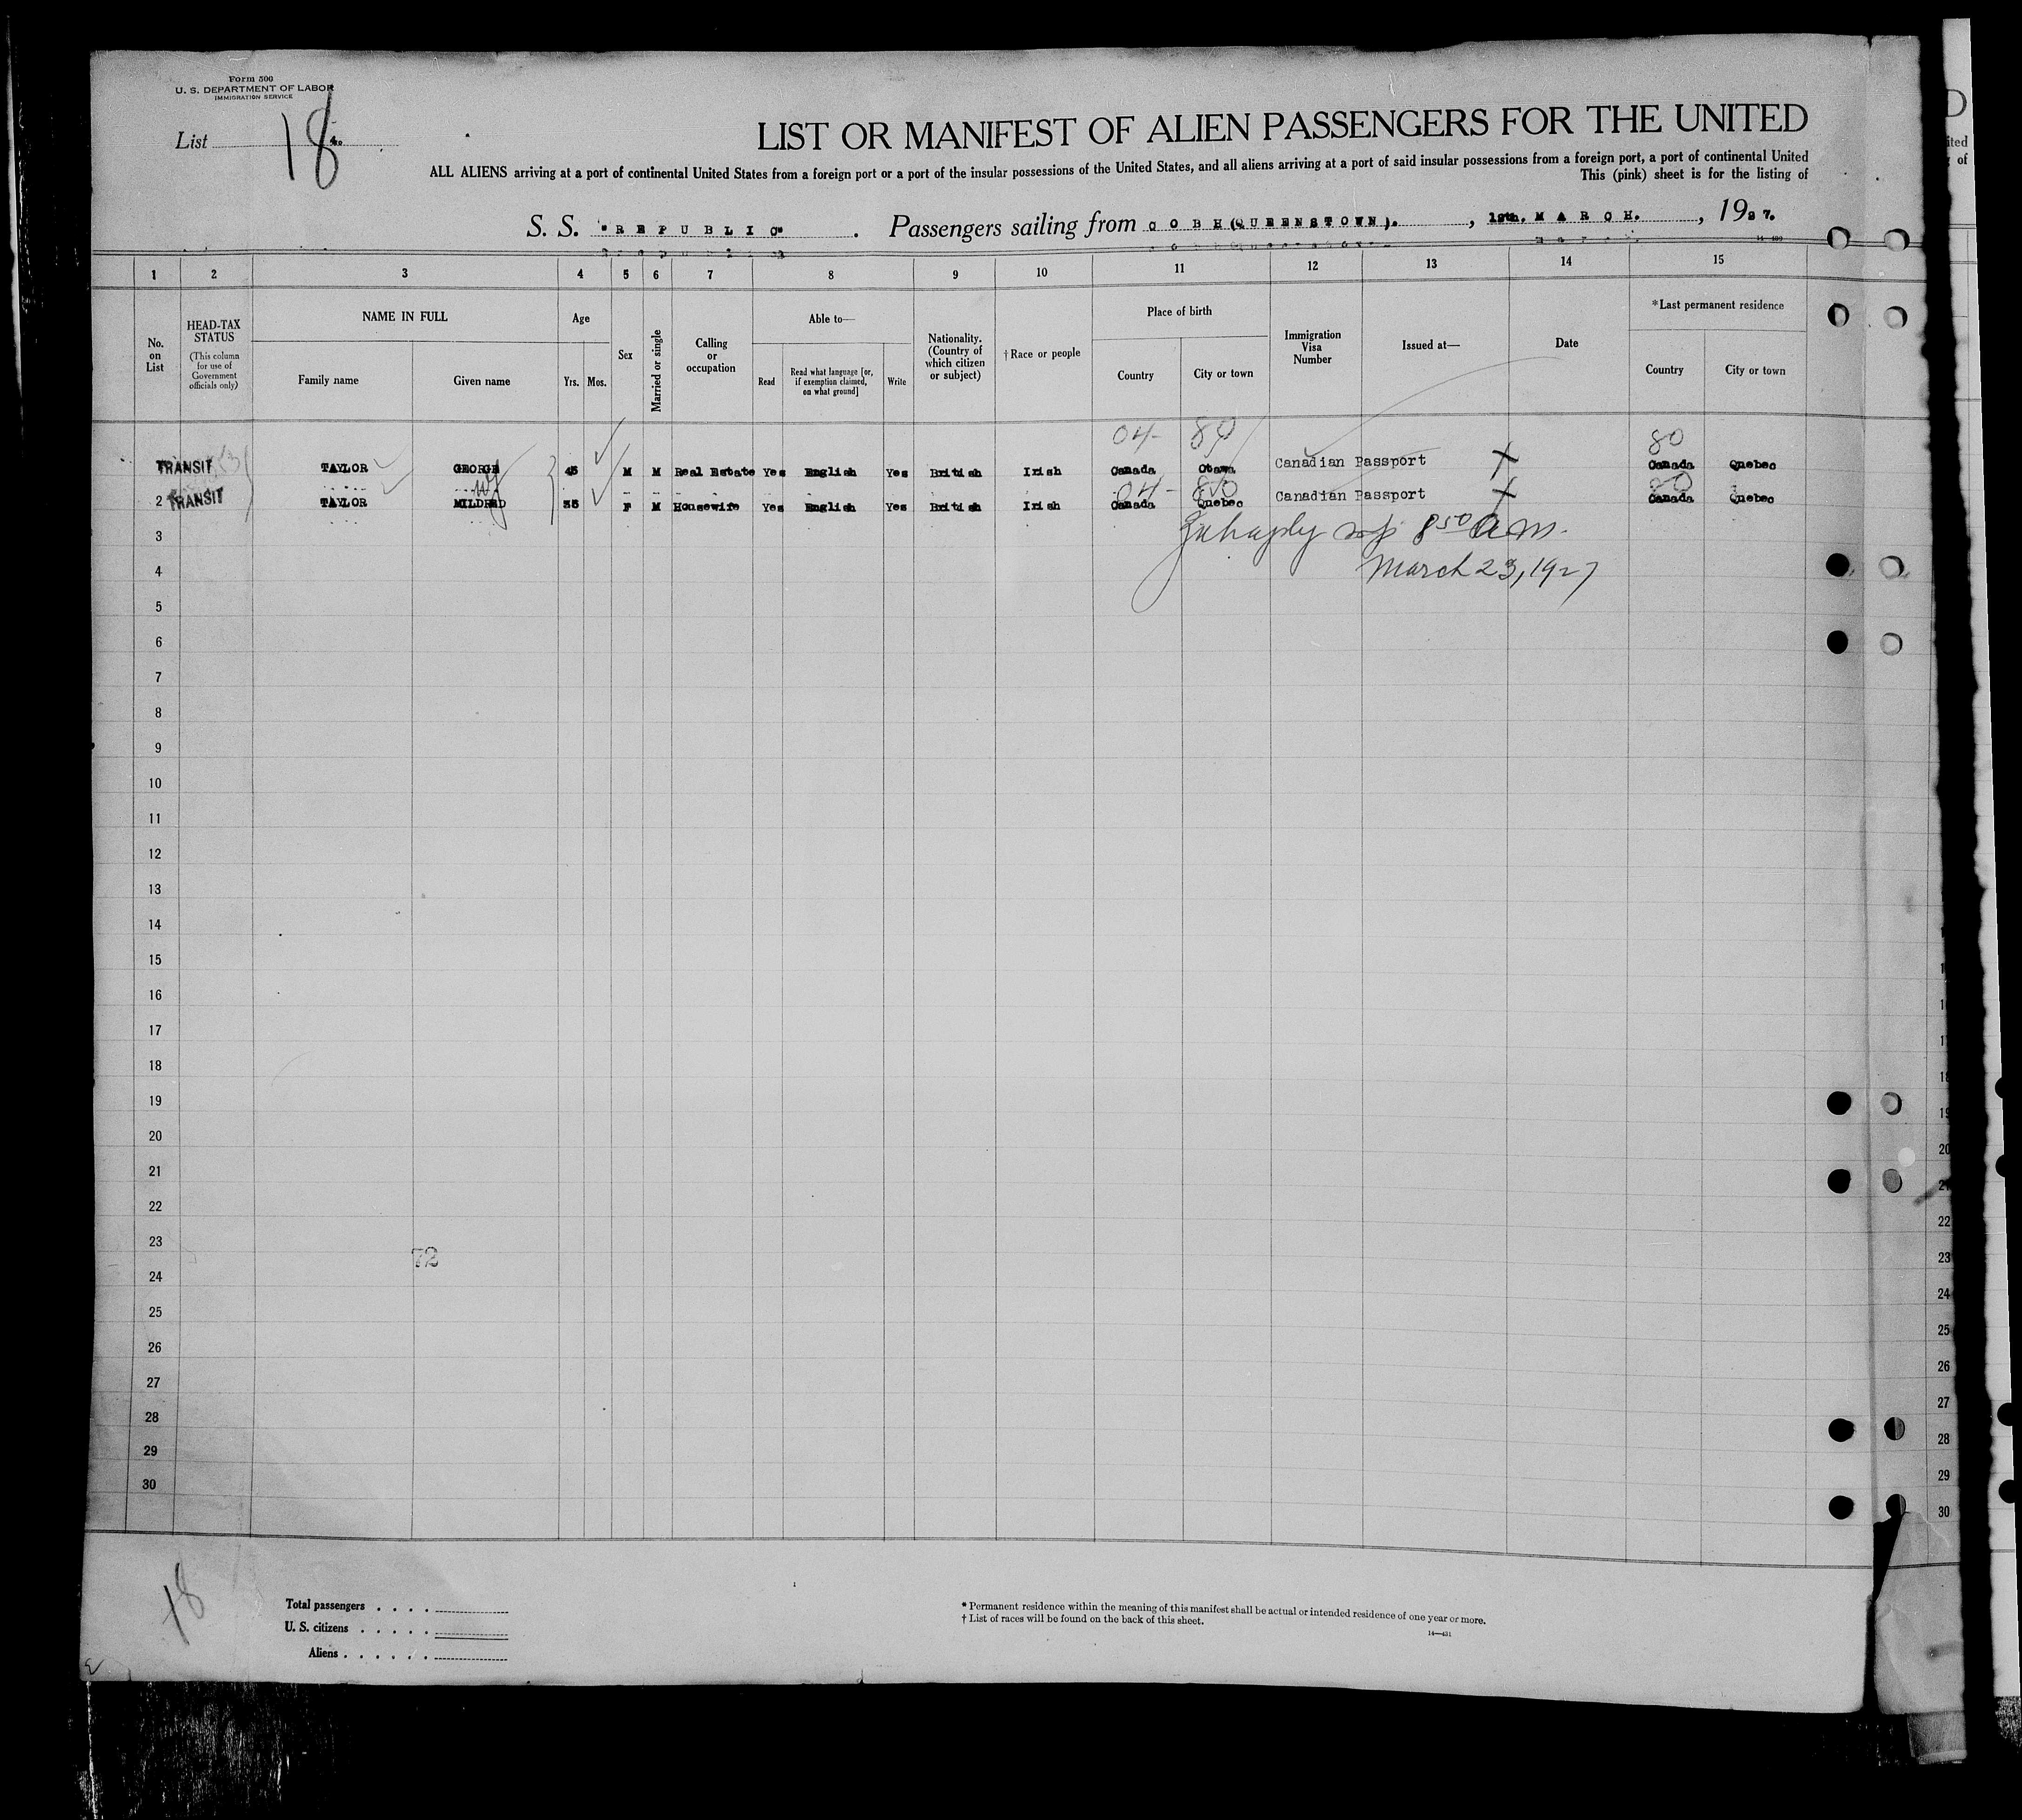 Form 500
U. S. DEPARTMENT OF LABOR
IMMIGRATION SERVICE
List 18
LIST OR MANIFEST OF ALIEN PASSENGERS FOR THE UNITED
ALL ALIENS arriving at a port of continental United States from a foreign port or a port of the insular possessions of the United States, and all aliens arriving at a port of said insular possessions from a foreign port, a port of continental United
This (pink) sheet is for the listing of
S. S. "REPUBLIC" . Passengers sailing from COBH(QUEENSTOWN). , MARCH. , 1927.
1 2 3 4 5 6 7 8 9 10 11 12 13 14 15
No. on List
HEAD-TAX STATUS
(This column for use of Government officials only)
NAME IN FULL
Family name
Given name
Age
Yrs.
Mos.
Sex
Married or single
Calling or occupation
Able to—
Read
Read what language [or, if exemption claimed, on what ground]
Write
Nationality. (Country of which citizen or subject)
†Race or people
Place of birth
Country
City or town
Immigration Visa Number
Issued at—
Date
*Last permanent residence
Country
City or town
04- 80
TRANSIT TAYLOR GEORGE 45 M M Real Estate Yes English Yes British Irish Canada Otawa Canadian Passport X Canada Quebec
wf
2 TRANSIT TAYLOR MILDRED 35 F M Housewife Yes English Yes British Irish Canada Quebec Canadian Passport X Canada Quebec
3 8 50 a.m.
4 March 23, 1927
5
6
7
8
9
10
11
12
13
14
15
16
17
18
19
20
21
22
23
72
24
25
26
27
28
29
30
18
Total passengers . . . .
U. S. citizens . . . . .
Aliens . . . . . .
* Permanent residence within the meaning of this manifest shall be actual or intended residence of one year or more.
† List of races will be found on the back of this sheet.